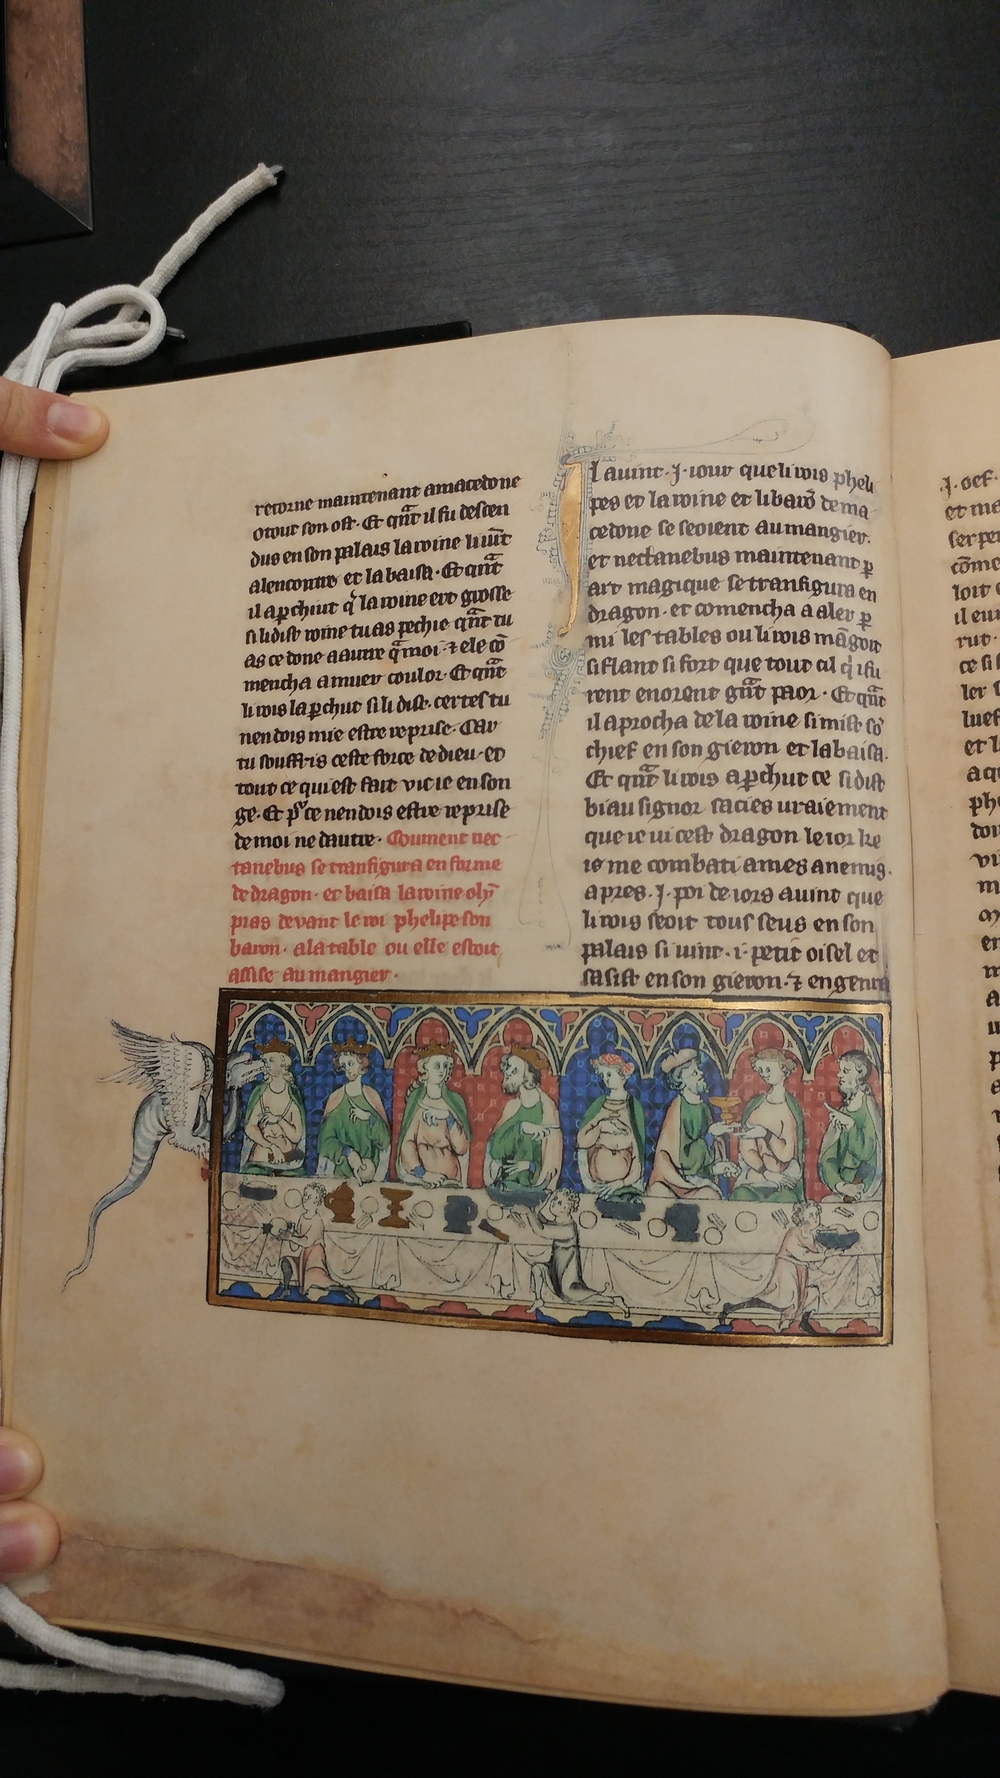 retorne maintenant amacedone
otout son ost· Et qñt il fu descen
dus en son palais la roine li uīt
alencontre et la baisa· Et qñt
il apchiut q̄ la roine ert grosse
si li dist roine tu as pechie qñt tu
as ce done a autre q̄ moi· ⁊ ele cō
mencha a muer coulor· Et qñt
li rois la pchut si li dist· certes tu
nen dois mie estre reprise· Car
tu souffris ceste force de dieu· et
tout ce qui est fait vic ie en son
ge· Et pᵒ ce nen dois estre reprise
de moi ne dautre· Coument nec
tanebus se tranfigura en forme
de dragon· et baisa la roine olȳ
pias devant le roi phelipe son
baron· a la table ou elle estoit
assise au mangier·
Il auint ·J· iour que li rois pheli
pes et la roine et li barō de ma
cedone se seoient au mangier·
et nectanebus maintenant p
art magique se tranfigura en
dragon· et comencha a aler p
mi les tables ou li rois māgoit
siflant si fort que tout cil q̇ i fu
rent enorent gñt paor· Et qñt
il aprocha de la roine si mist sō
chief en son gieron et la baisa·
Et qñt li rois apchut ce si dist
biau signor sacies uraiement
que ie ui cest dragon le ior ke
ie me combati a mes anemis·
apres ·J· poi de iors auint que
li rois seoit tous seus en son
palais si uint ·i· petit oisel et
sasist en son gieron· ⁊ engenra
·J· oef·
et ma
serpe
cōme
loit
il eu
rut·
ce si
ler s
luef
et l
a q
phe
dou